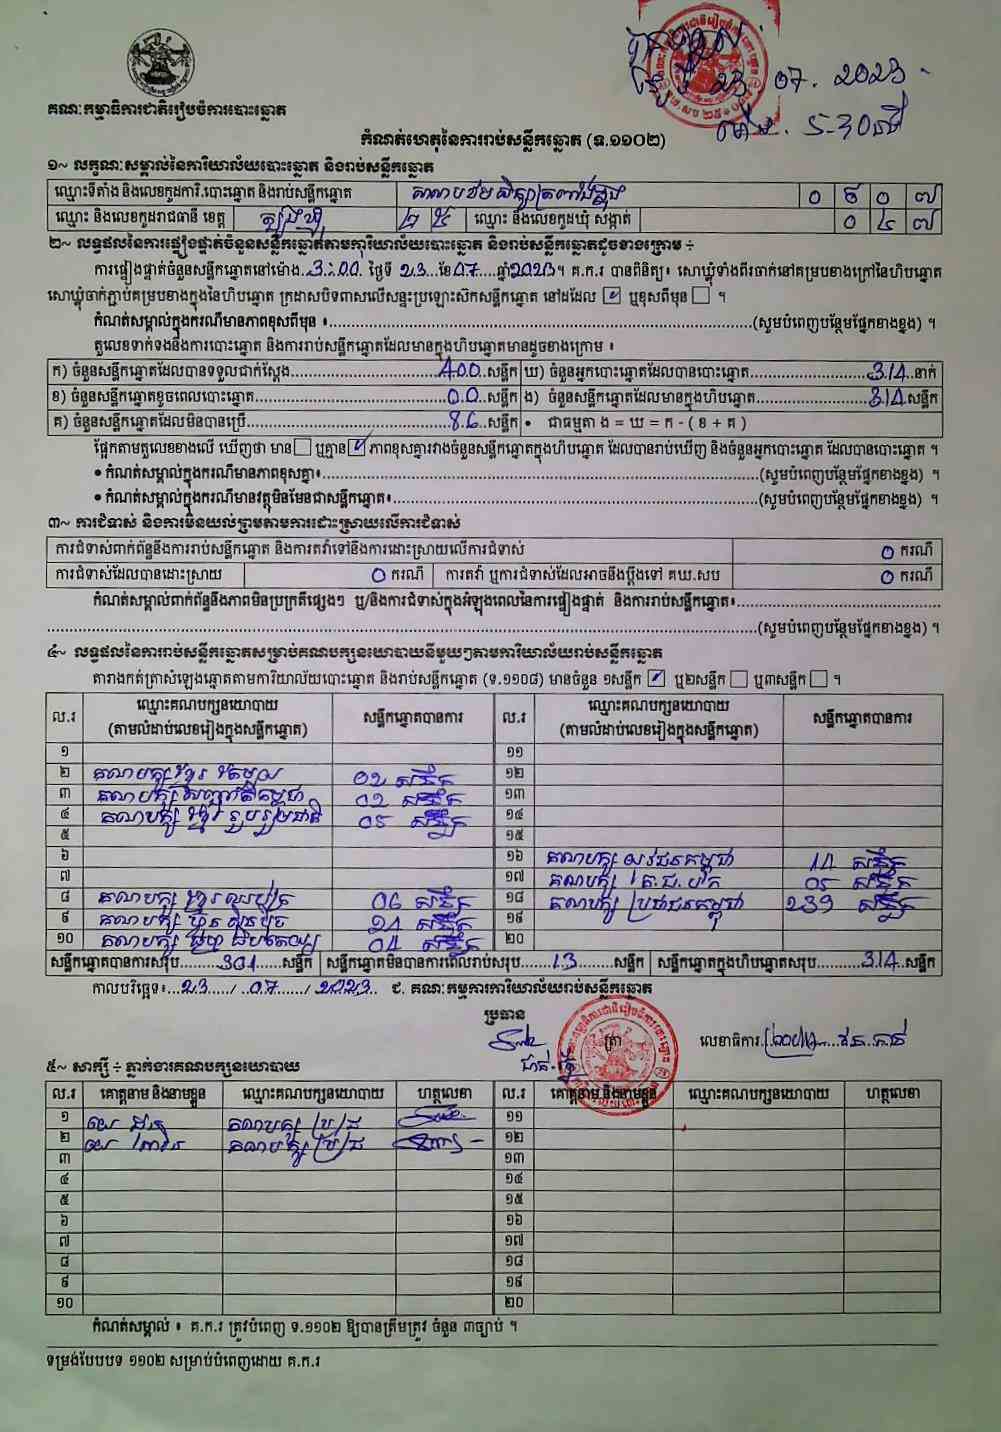 គណៈកម្មាធិការជាតិរៀបចំការបោះឆ្នោត
23.07.2023
5-30
កំណត់ហេតុនៃការរាប់សន្លឹកឆ្នោត (ទ.១១០២)
១~ លក្ខណៈសម្គាល់នៃការិយាល័យបោះឆ្នោត និងរាប់សន្លឹកឆ្នោត
ឈ្មោះទីតាំង និងលេខកូដការិ.បោះឆ្នោត និងរាប់សន្លឹកឆ្នោត
ឈ្មោះ និងលេខកូដរាជធានី ខេត្ត ត្បូងឃ្មុំ ២ ៥ ឈ្មោះ និងលេខកូដឃុំ សង្កាត់ 0 ៤ ៧
២~ លទ្ធផលនៃការផ្ទៀងផ្ទាត់ចំនួនសន្លឹកឆ្នោតតាមការិយាល័យបោះឆ្នោត និងរាប់សន្លឹកឆ្នោតដូចខាងក្រោម ÷
ការផ្ទៀងផ្ទាត់ចំនួនសន្លឹកឆ្នោតនៅម៉ោង..3:00. ថ្ងៃទី 23...ខែ07....ឆ្នាំ2023។ គ.ក.រ បានពិនិត្យ៖ សោឃ្លុំទាំងពីរចាក់នៅគម្របខាងក្រៅនៃហិបឆ្នោត
សោឃ្លុំចាក់ភ្ជាប់គម្របខាងក្នុងនៃហិបឆ្នោត ក្រដាសបិទពាសលើសន្ទះប្រឡោះស៊កសន្លឹកឆ្នោត នៅដដែល ☑ ឬខុសពីមុន ☐ ។
កំណត់សម្គាល់ក្នុងករណីមានភាពខុសពីមុន ៖...(សូមបំពេញបន្ថែមផ្នែកខាងខ្នង) ។
តួលេខទាក់ទងនឹងការបោះឆ្នោត និងការរាប់សន្លឹកឆ្នោតដែលមានក្នុងហិបឆ្នោតមានដូចខាងក្រោម ៖
ក) ចំនួនសន្លឹកឆ្នោតដែលបានទទួលជាក់ស្តែង...400..សន្លឹក ឃ) ចំនួនអ្នកបោះឆ្នោតដែលបានបោះឆ្នោត...314..នាក់
ខ) ចំនួនសន្លឹកឆ្នោតខូចពេលបោះឆ្នោត...00..សន្លឹក ង) ចំនួនសន្លឹកឆ្នោតដែលមានក្នុងហិបឆ្នោត...314សន្លឹក
គ) ចំនួនសន្លឹកឆ្នោតដែលមិនបានប្រើ...86..សន្លឹក • ជាធម្មតា ង = ឃ = ក - ( ខ + គ )
ផ្អែកតាមតួលេខខាងលើ ឃើញថា មាន☐ ឬគ្មាន☑ ភាពខុសគ្នារវាងចំនួនសន្លឹកឆ្នោតក្នុងហិបឆ្នោត ដែលបានរាប់ឃើញ និងចំនួនអ្នកបោះឆ្នោត ដែលបានបោះឆ្នោត ។
• កំណត់សម្គាល់ក្នុងករណីមានភាពខុសគ្នា៖...(សូមបំពេញបន្ថែមផ្នែកខាងខ្នង) ។
• កំណត់សម្គាល់ក្នុងករណីមានវត្ថុមិនមែនជាសន្លឹកឆ្នោត៖...(សូមបំពេញបន្ថែមផ្នែកខាងខ្នង) ។
៣~ ការជំទាស់ និងការមិនយល់ព្រមតាមការដោះស្រាយលើការជំទាស់
ការជំទាស់ពាក់ព័ន្ធនឹងការរាប់សន្លឹកឆ្នោត និងការតវ៉ាទៅនឹងការដោះស្រាយលើការជំទាស់ 0 ករណី
ការជំទាស់ដែលបានដោះស្រាយ 0 ករណី ការតវ៉ា ឬការជំទាស់ដែលអាចនឹងប្តឹងទៅ គឃ.សប 0 ករណី
កំណត់សម្គាល់ពាក់ព័ន្ធនឹងភាពមិនប្រក្រតីផ្សេងៗ ឬ/និងការជំទាស់ក្នុងអំឡុងពេលនៃការផ្ទៀងផ្ទាត់ និងការរាប់សន្លឹកឆ្នោត៖...
...(សូមបំពេញបន្ថែមផ្នែកខាងខ្នង) ។
៤~ លទ្ធផលនៃការរាប់សន្លឹកឆ្នោតសម្រាប់គណបក្សនយោបាយនីមួយៗតាមការិយាល័យរាប់សន្លឹកឆ្នោត
តារាងកត់ត្រាសំឡេងឆ្នោតតាមការិយាល័យបោះឆ្នោត និងរាប់សន្លឹកឆ្នោត (ទ.១១០៨) មានចំនួន ១សន្លឹក ☑ ឬ២សន្លឹក ☐ ឬ៣សន្លឹក ☐ ។
ល.រ ឈ្មោះគណបក្សនយោបាយ (តាមលំដាប់លេខរៀងក្នុងសន្លឹកឆ្នោត) សន្លឹកឆ្នោតបានការ ល.រ ឈ្មោះគណបក្សនយោបាយ (តាមលំដាប់លេខរៀងក្នុងសន្លឹកឆ្នោត) សន្លឹកឆ្នោតបានការ
១ ១១
២ គណបក្ស ខ្មែរ 02 សន្លឹក ១២
៣ គណបក្ស 02 សន្លឹក ១៣
៤ គណបក្ស ខ្មែរ រួបរួមជាតិ 05 សន្លឹក ១៤
៥ ១៥
៦ ១៦ គណបក្ស យុវជនកម្ពុជា 14 សន្លឹក
៧ ១៧ គណបក្ស 05 សន្លឹក
៨ គណបក្ស ខ្មែរ 06 សន្លឹក ១៨ គណបក្ស ប្រជាជនកម្ពុជា 239 សន្លឹក
៩ គណបក្ស ហ្វ៊ុនស៊ិនប៉ិច 24 សន្លឹក ១៩
១០ គណបក្ស 04 សន្លឹក ២០
សន្លឹកឆ្នោតបានការសរុប...301...សន្លឹក សន្លឹកឆ្នោតមិនបានការពេលរាប់សរុប...13...សន្លឹក សន្លឹកឆ្នោតក្នុងហិបឆ្នោតសរុប...314..សន្លឹក
កាលបរិច្ឆេទ៖...23...../..07....../..2023.. ជ. គណៈកម្មការការិយាល័យរាប់សន្លឹកឆ្នោត
ប្រធាន
ត្រា
លេខាធិការ
៥~ សាក្សី ÷ ភ្នាក់ងារគណបក្សនយោបាយ
ល.រ គោត្តនាម និងនាមខ្លួន ឈ្មោះគណបក្សនយោបាយ ហត្ថលេខា ល.រ គោត្តនាម និងនាមខ្លួន ឈ្មោះគណបក្សនយោបាយ ហត្ថលេខា
១ គណបក្ស ១១
២ គណបក្ស ១២
៣ ១៣
៤ ១៤
៥ ១៥
៦ ១៦
៧ ១៧
៨ ១៨
៩ ១៩
១០ ២០
កំណត់សម្គាល់ ៖ គ.ក.រ ត្រូវបំពេញ ទ.១១០២ ឱ្យបានត្រឹមត្រូវ ចំនួន ៣ច្បាប់ ។
ទម្រង់បែបបទ ១១០២ សម្រាប់បំពេញដោយ គ.ក.រ